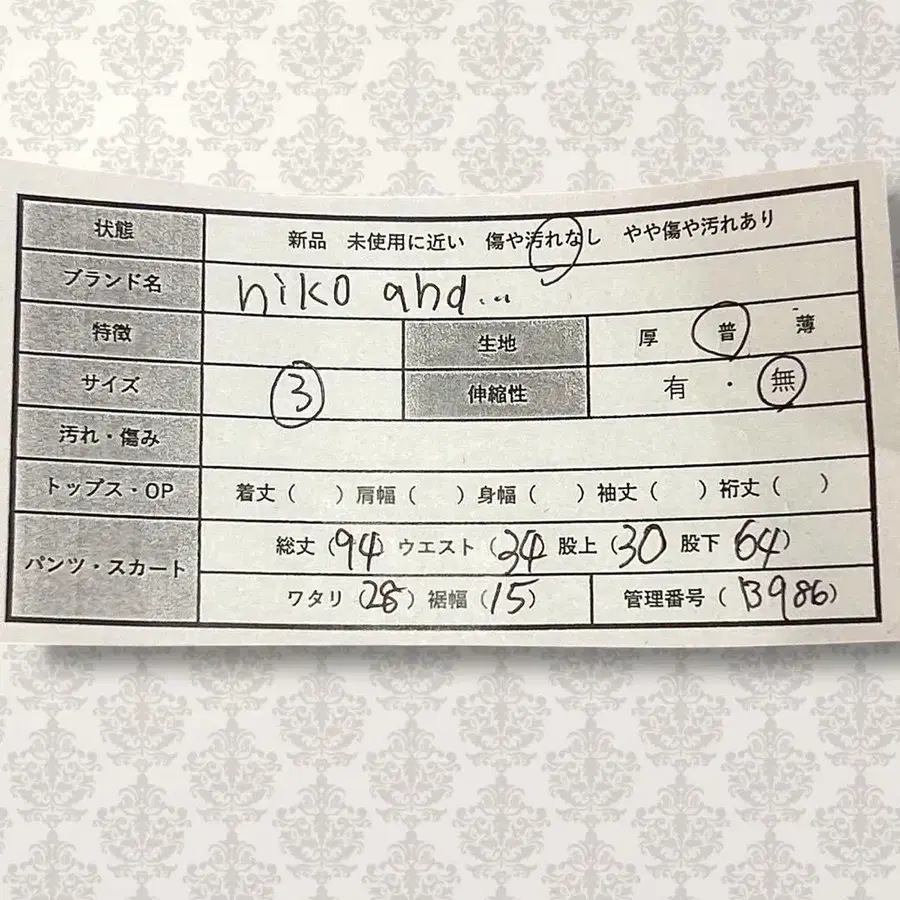 状態 新品 未使用に近い 傷や汚れなし やや傷や汚れあり
ブランド名 niko and...
特徴 生地 厚 普 薄
サイズ 3 伸縮性 有 ・ 無
汚れ・傷み
トップス・OP 着丈( )肩幅( )身幅( )袖丈( )裄丈( )
パンツ・スカート 総丈(94 ウエスト(34 股上(30 股下 64)
ワタリ(28)裾幅(15) 管理番号(B986)